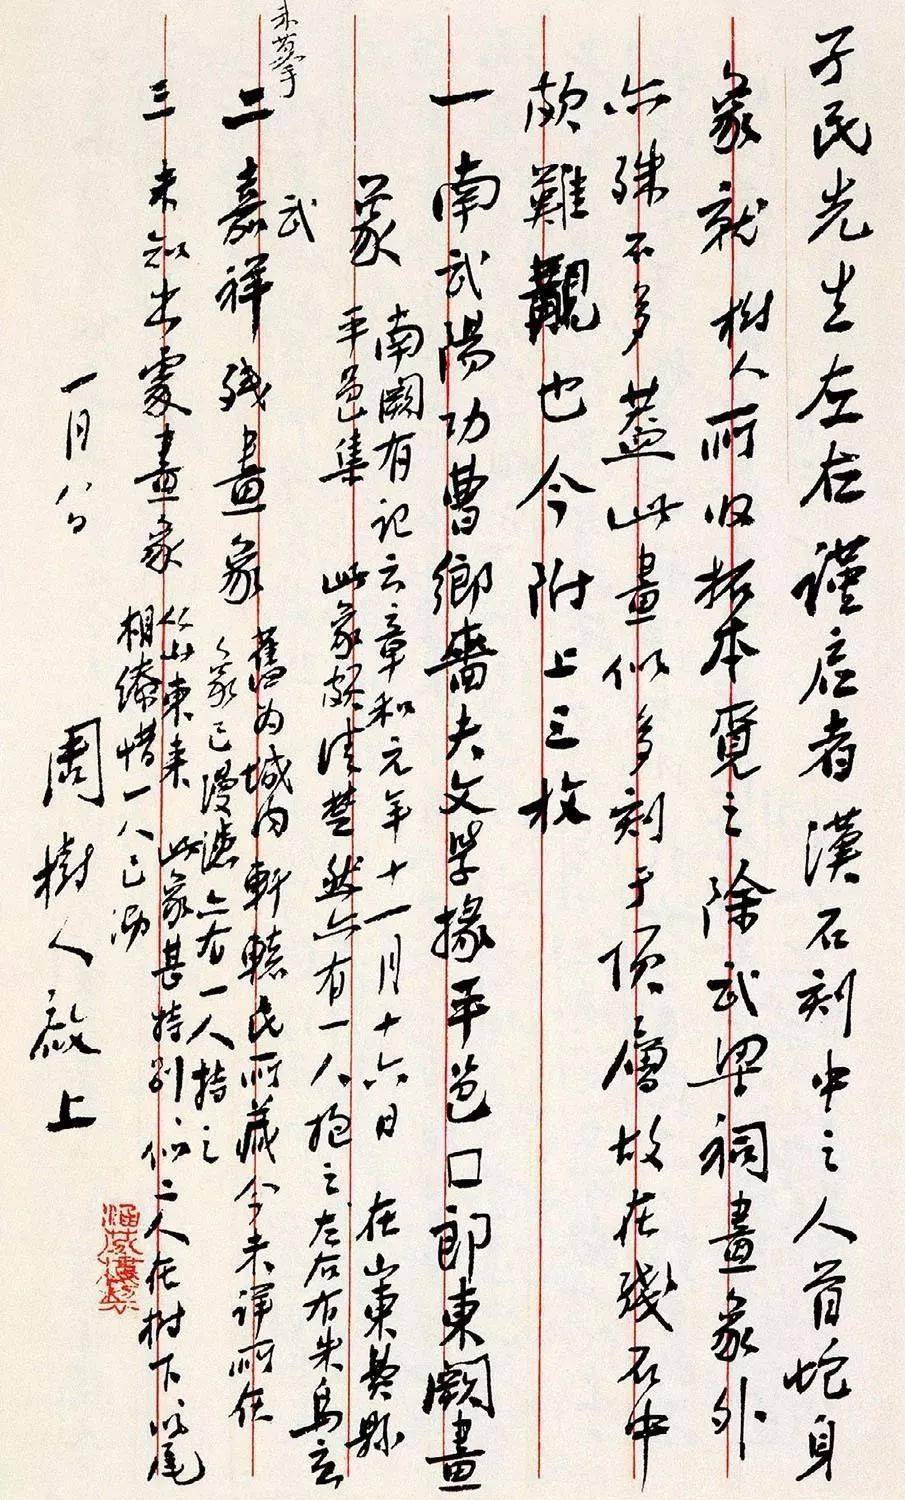 子民先生左右谨启者汉石刻中之人首蛇身
象就 樹人所收拓本覓之除武梁祠畫象外
亦殊不多蓋此畫似多刻于頂層故在殘石中
頗難覯也今附上三枚
一 南武陽功曹鄉嗇夫文學掾平邑口郎東闕畫
象 南闕有記云章和元年十一月十六日 在山東費縣
平邑集 此象頗清楚然亦有一人抱之左右有朱鳥玄
武
二 嘉祥殘畫象 舊為城內軒轅氏所藏今未詳所在
象已漫漶亦有一人持之
三 未知出處畫象 從山東来 此象甚特別似二人在樹下以尾
相繚惜一人已泐
一月八日
周樹人啟上